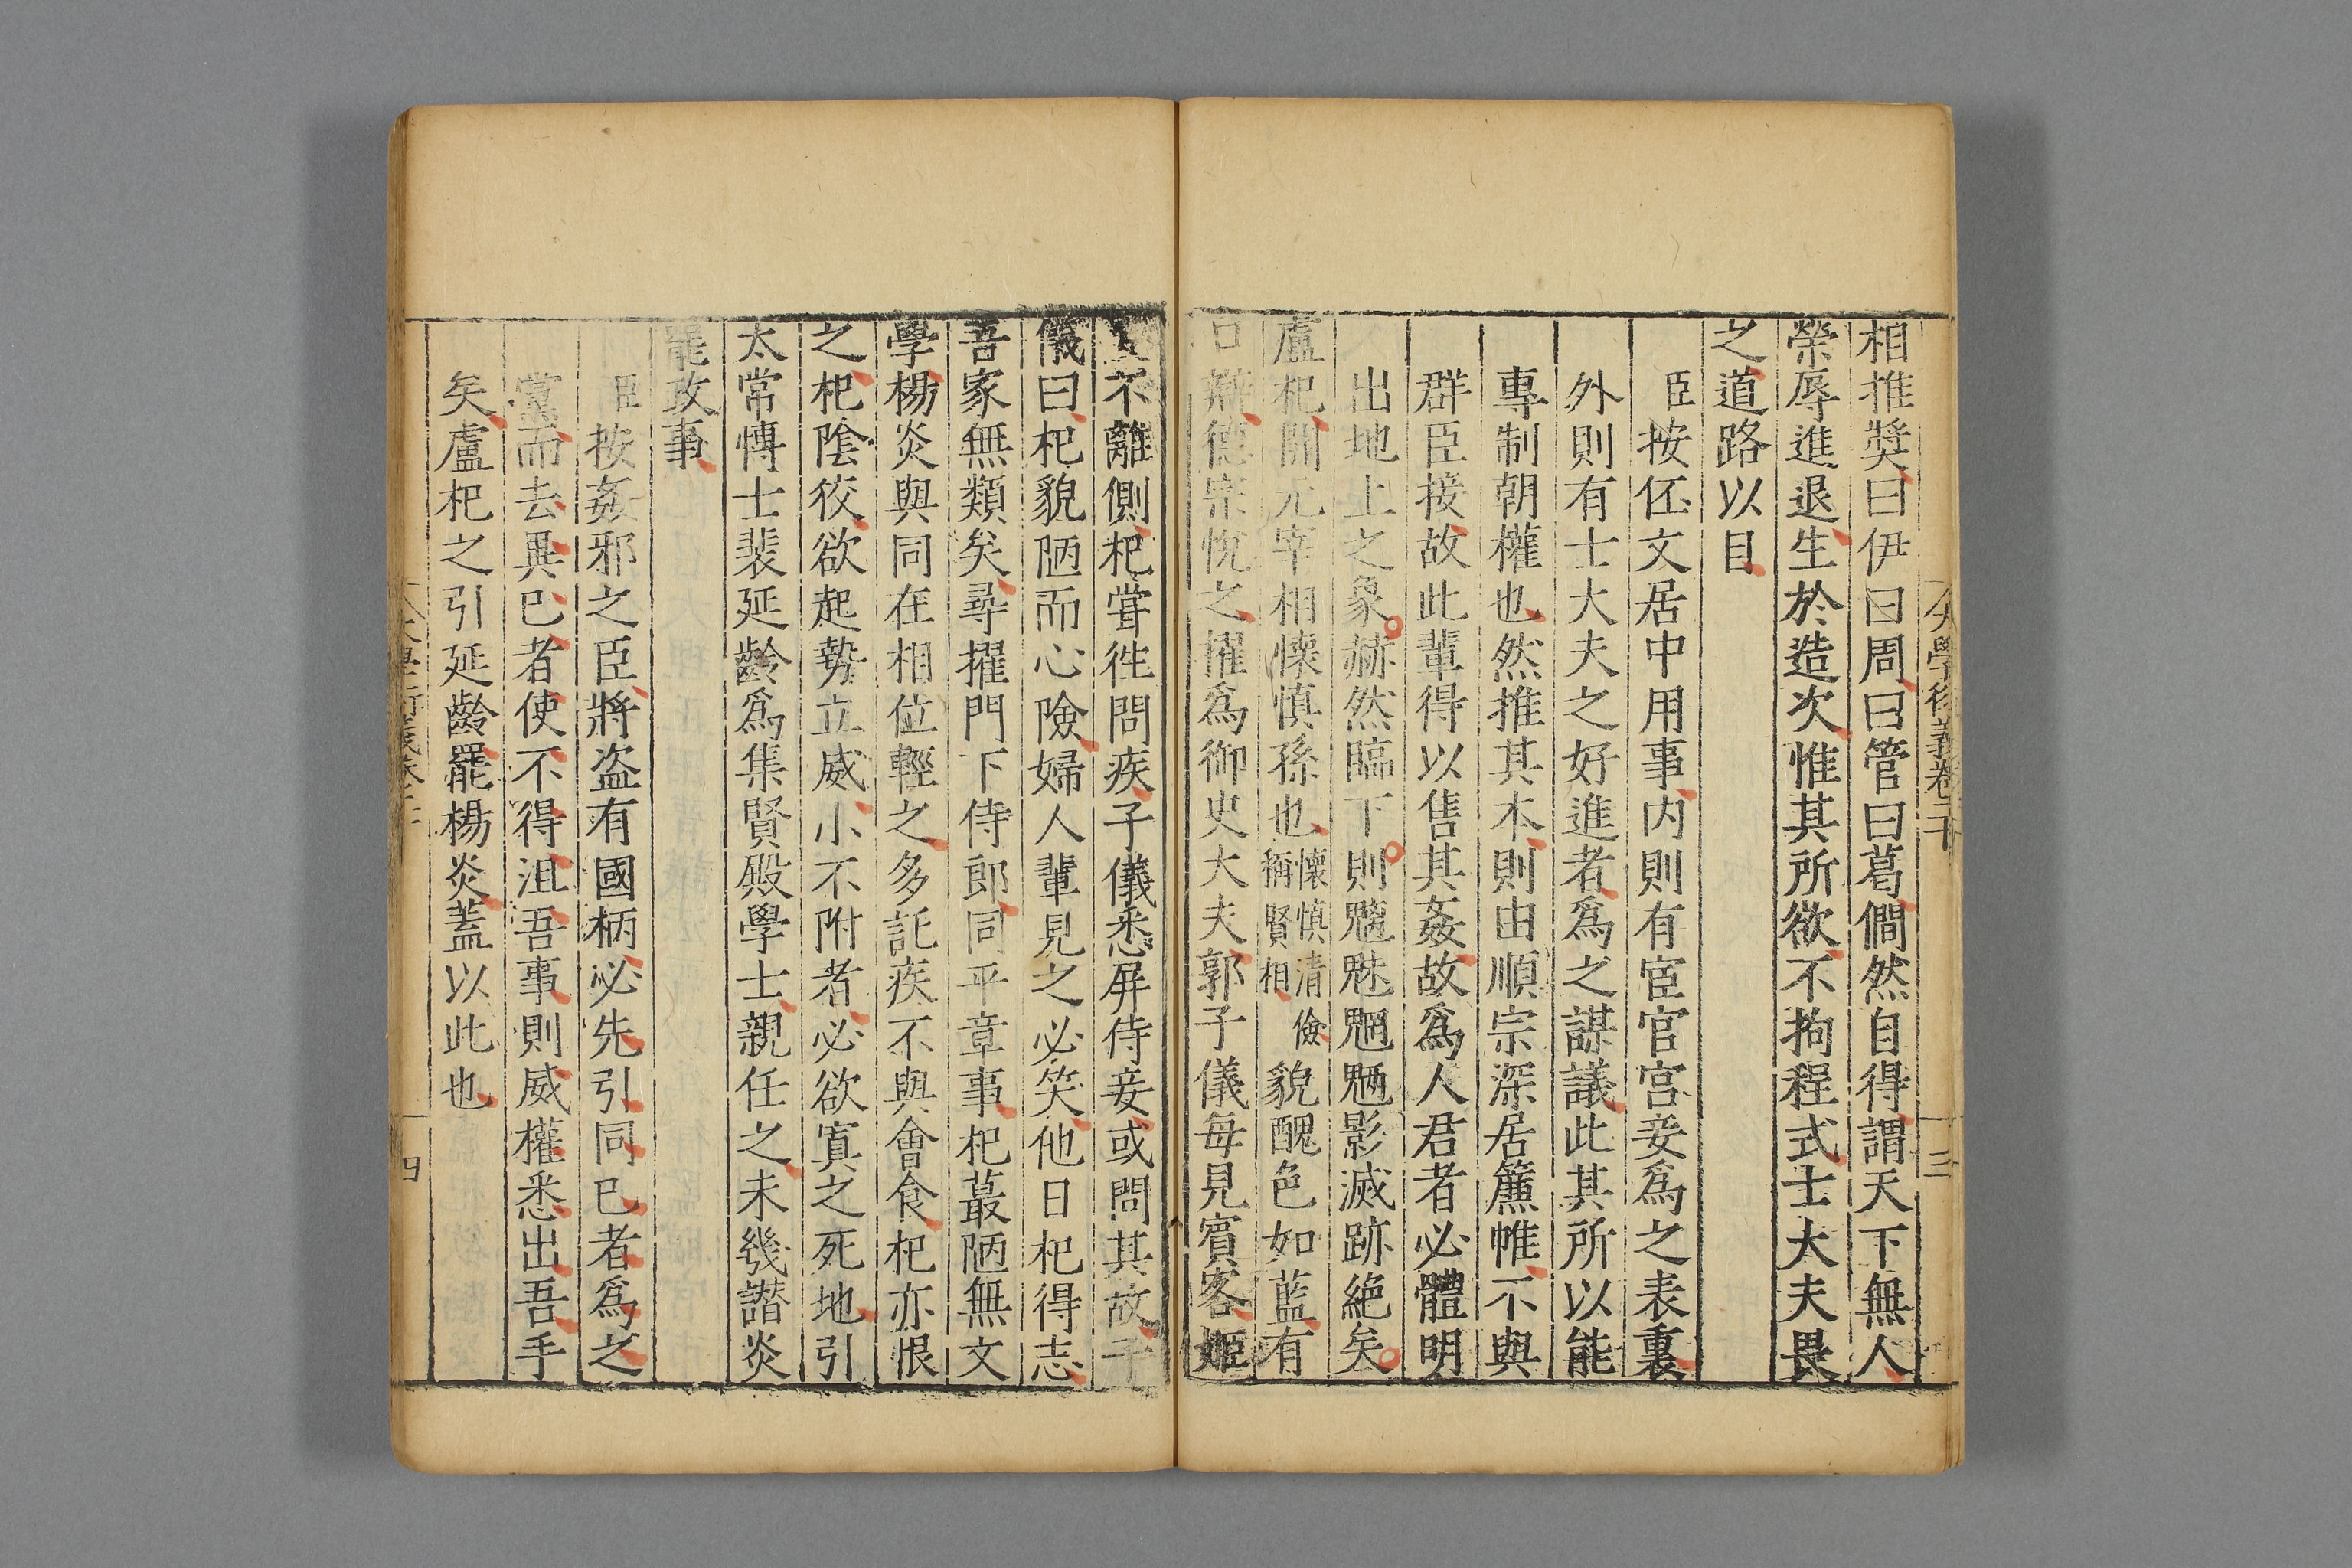 大學衍義卷二十
三
相推獎曰伊曰周曰管曰葛僩然自得謂天下無人
榮辱進退生於造次惟其所欲不拘程式士大夫畏
之道路以目
臣按伾文居中用事内則有宦官宮妾爲之表裏
外則有士大夫之好進者爲之謀議此其所以能
專制朝權也然推其本則由順宗深居簾帷不與
群臣接故此輩得以售其姦故爲人君者必體明
出地上之象赫然臨下則魑魅魍魎影滅跡絶矣
盧杞開元宰相懷慎孫也懷慎清儉稱賢相貌醜色如藍有
口辯德宗悅之擢爲御史大夫郭子儀每見賓客姬
妾不離側杞嘗徃問疾子儀悉屏侍妾或問其故子
儀曰杞貌陋而心險婦人輩見之必笑他日杞得志
吾家無類矣尋擢門下侍郎同平章事杞蕞陋無文
學楊炎與同在相位輕之多託疾不與會食杞亦恨
之杞陰狡欲起勢立威小不附者必欲寘之死地引
太常博士裴延齡爲集賢殿學士親任之未幾譖炎
罷政事
臣按姦邪之臣將盗有國柄必先引同已者爲之
黨而去異已者使不得沮吾事則威權悉出吾手
矣盧杞之引延齡罷楊炎蓋以此也
大學衍義卷二十
四